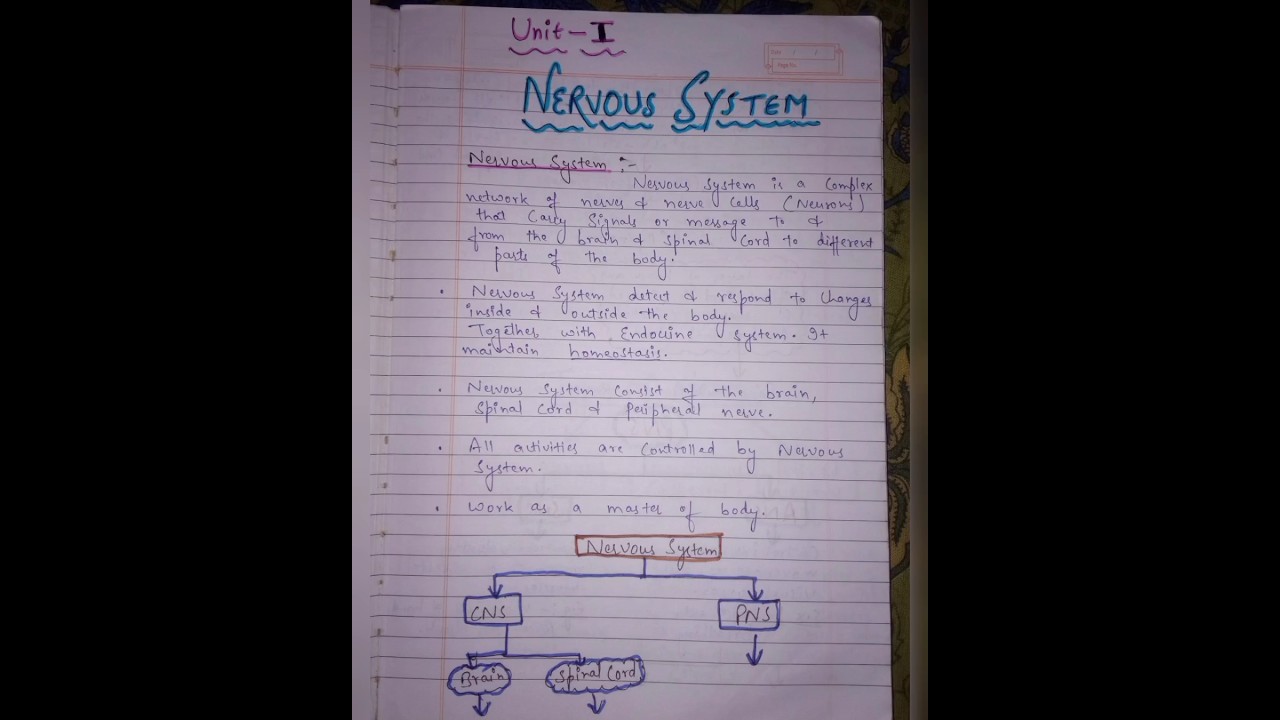 Unit-I
Date / /
Page No.
NERVOUS SYSTEM
Nervous System :-
Nervous System is a Complex
network of nerves & nerve Cells (Neurons)
that Carry Signals or message to &
from the brain & spinal Cord to different
parts of the body.
• Nervous System detect & respond to Changes
inside & outside the body.
Together with Endocrine System. It
maintain homeostasis.
• Nervous System Consist of the brain,
Spinal Cord & Peripheral nerve.
• All activities are Controlled by Nervous
System.
• Work as a master of body.
Nervous System
CNS PNS
Brain Spinal Cord